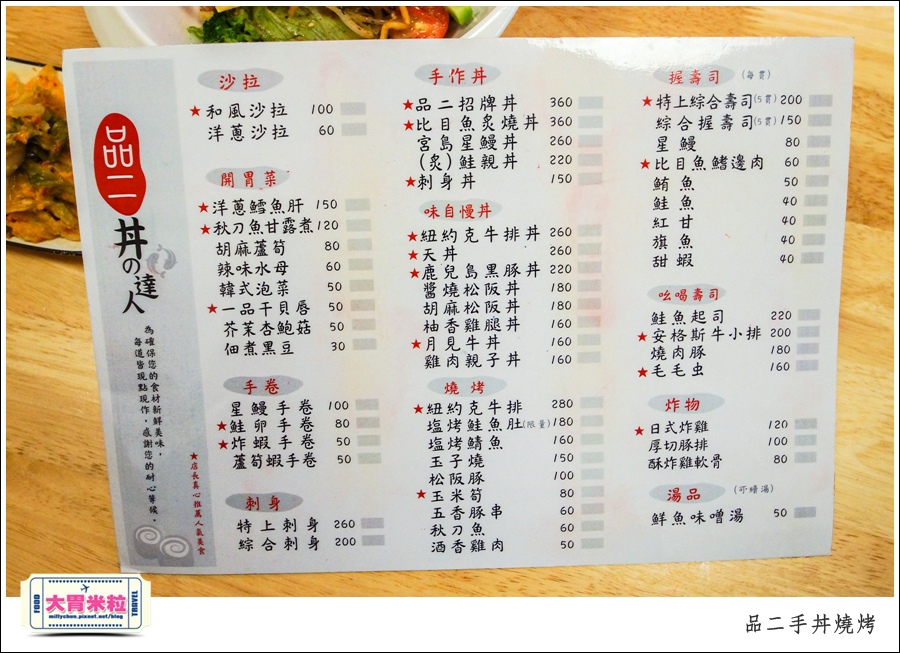 品二
丼の達人
為確保您的食材新鮮美味，
每道皆現點現作，感謝您的耐心等候。
★店長真心推薦人氣美食
沙拉
★和風沙拉 100
洋蔥沙拉 60
開胃菜
★洋蔥鱈魚肝 150
★秋刀魚甘露煮 120
胡麻蘆筍 80
辣味水母 60
韓式泡菜 50
★一品干貝唇 50
芥茉杏鮑菇 50
佃煮黑豆 30
手卷
星鰻手卷 100
★鮭卵手卷 80
★炸蝦手卷 50
蘆筍蝦手卷 50
刺身
特上刺身 260
綜合刺身 200
手作丼
★品二招牌丼 360
★比目魚炙燒丼 360
宮島星鰻丼 260
(炙)鮭親丼 220
★刺身丼 150
味自慢丼
★紐約克牛排丼 260
★天丼 260
★鹿兒島黑豚丼 220
醬燒松阪丼 180
胡麻松阪丼 180
柚香雞腿丼 160
★月見牛丼 160
雞肉親子丼 160
燒烤
★紐約克牛排 280
塩烤鮭魚肚(限量) 180
塩烤鯖魚 160
玉子燒 150
松阪豚 100
★玉米筍 80
五香豚串 60
秋刀魚 60
酒香雞肉 50
握壽司 (每貫)
★特上綜合壽司(5貫) 200
綜合握壽司(5貫) 150
星鰻 80
★比目魚鰭邊肉 60
鮪魚 50
鮭魚 40
紅甘 40
旗魚 40
甜蝦 40
吆喝壽司
鮭魚起司 220
★安格斯牛小排 200
燒肉豚 180
★毛毛虫 160
炸物
★日式炸雞 120
厚切豚排 100
酥炸雞軟骨 80
湯品 (可續湯)
鮮魚味噌湯 50
FOOD
大胃米粒
TRAVEL
millychun.pixnet.net/blog
品二手丼燒烤